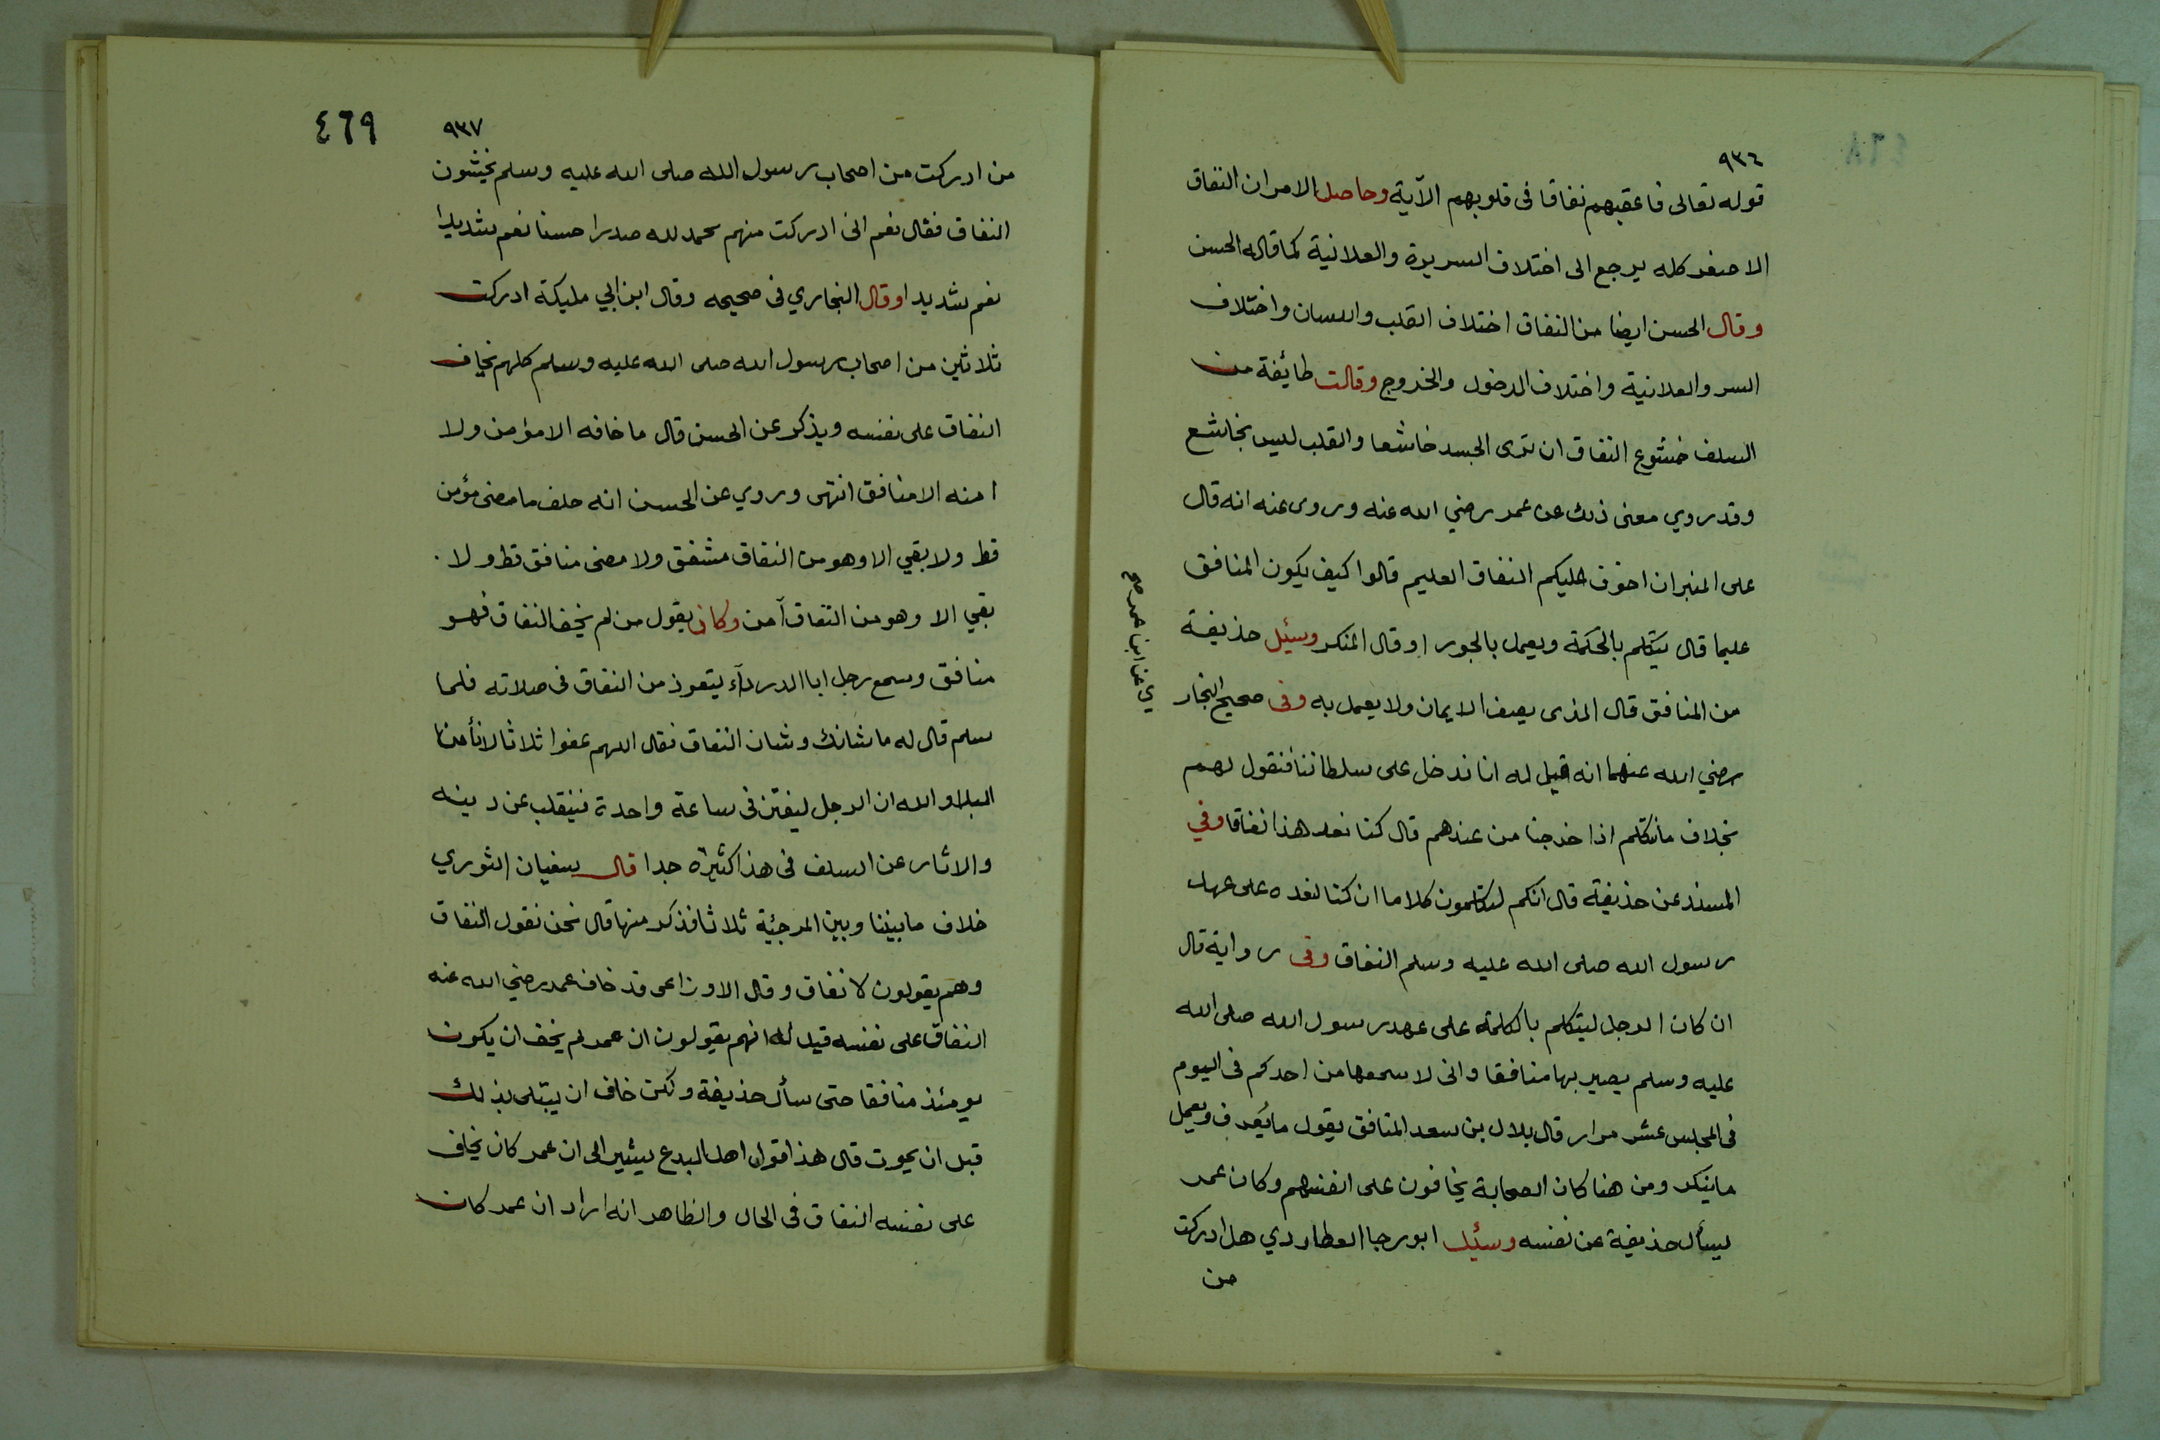 ٩٣٦
قوله تعالى فاعقبهم نفاقا في قلوبهم الآية وحاصل الامر ان النفاق
الاصغر كله يرجع الى اختلاف السريرة والعلانية كما قاله الحسن
وقال الحسن ايضا من النفاق اختلاف القلب واللسان واختلاف
السر والعلانية واختلاف الدخول والخروج وقالت طائفة من
السلف خشوع النفاق ان ترى الجسد خاشعا والقلب ليس بخاشع
وقد روي معنى ذلك عن عمر رضي الله عنه وروى عنه انه قال
على المنبر ان اخوف عليكم النفاق العليم قالوا كيف يكون المنافق
عليما قال يتكلم بالحكمة ويعمل بالجور او قال المنكر وسئل حذيفة
من المنافق قال الذى يصف الايمان ولا يعمل به وفى صحيح البخار
ي عن ابن عمر صح
رضي الله عنهما انه قيل له انا ندخل على سلطاننا فنقول لهم
بخلاف ما نتكلم اذا خرجنا من عندهم قال كنا نعد هذا نفاقا وفي
المسند عن حذيفة قال انكم لتتكلمون كلاما ان كنا لنعده على عهد
رسول الله صلى الله عليه وسلم النفاق وفى رواية قال
ان كان الرجل ليتكلم بالكلمة على عهد رسول الله صلى الله
عليه وسلم يصير بها منافقا وانى لاسمعها من احدكم فى اليوم
فى المجلس عشر مرار قال بلال بن سعد المنافق يقول ما يعرف ويعمل
ما ينكر ومن هنا كان الصحابة يخافون على انفسهم وكان عمر
يسأل حذيفة عن نفسه وسئل ابو رجا العطاردي هل ادركت
من
٤٦٩
٩٣٧
من ادركت من اصحاب رسول الله صلى الله عليه وسلم يخشون
النفاق فقال نعم انى ادركت منهم بحمد لله صدرا حسنا نعم شديدا
نعم شديدا وقال البخاري فى صحيحه وقال ابن ابي مليكة ادركت
ثلاثين من اصحاب رسول الله صلى الله عليه وسلم كلهم يخاف
النفاق على نفسه ويذكر عن الحسن قال ما خافه الا مؤمن ولا
امنه الا منافق انتهى وروي عن الحسن انه حلف ما مضى مؤمن
قط ولا بقي الا وهو من النفاق مشفق ولا مضى منافق قط ولا
بقي الا وهو من النفاق آمن وكان يقول من لم يخف النفاق فهو
منافق وسمع رجل ابا الدرداء يتعوذ من النفاق فى صلاته فلما
سلم قال له ما شانك وشان النفاق فقال اللهم عفوا ثلاثا لا نأمن
البلا والله ان الرجل ليفتن فى ساعة واحدة فينقلب عن دينه
والاثار عن السلف فى هذا كثيرة جدا قال سفيان الثوري
خلاف ما بيننا وبين المرجئة ثلاثا فذكر منها قال نحن نقول النفاق
وهم يقولون لا نفاق وقال الاوزاعى قد خاف عمر رضي الله عنه
النفاق على نفسه قيل له انهم يقولون ان عمر لم يخف ان يكون
يومئذ منافقا حتى سأل حذيفة ولكن خاف ان يبتلى بذلك
قبل ان يموت قال هذا قول اهل البدع يشير الى ان عمر كان يخاف
على نفسه النفاق فى الحال والظاهر انه اراد ان عمر كان